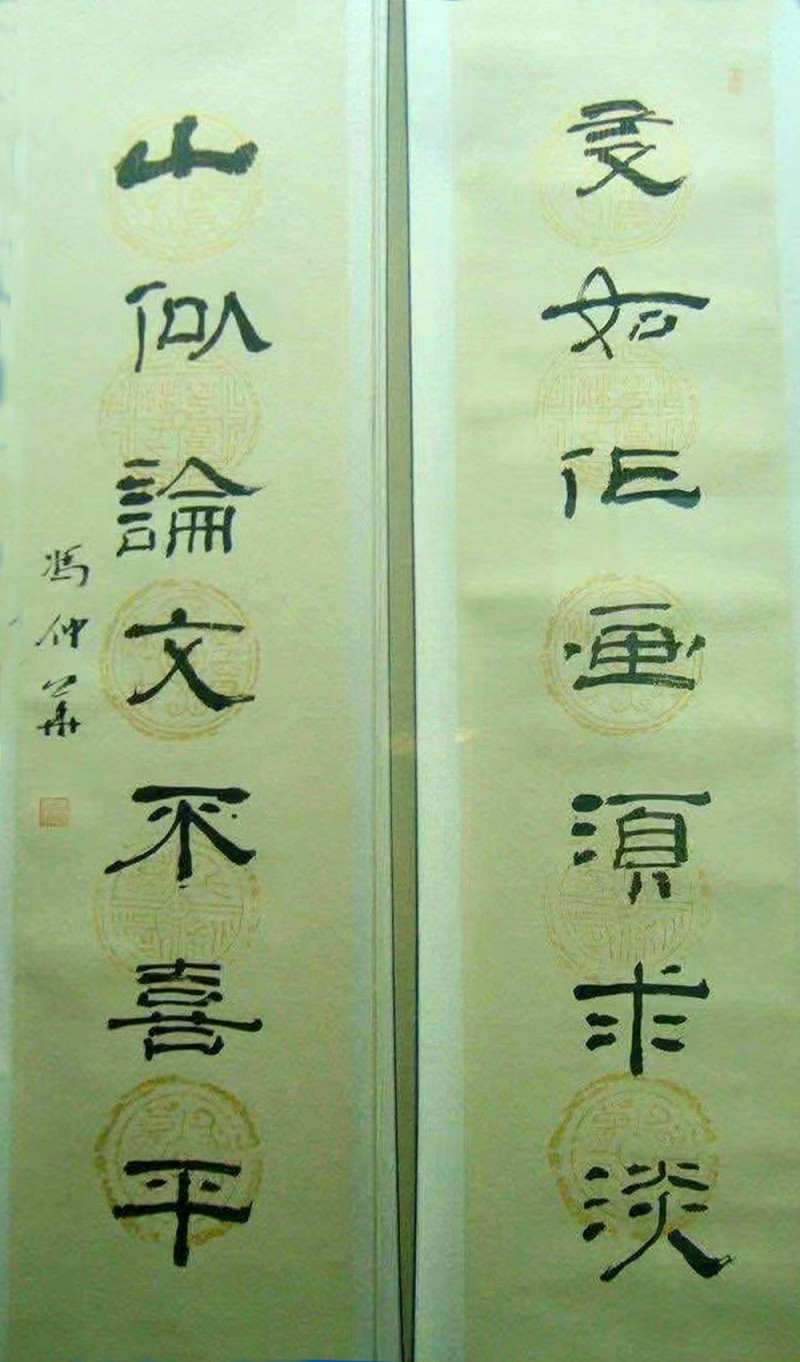 友如作画須求淡
山似論文不喜平
馮仲華